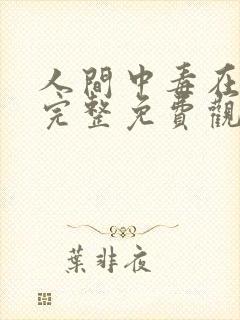 人間中毒在
完整免費觀
葉非夜